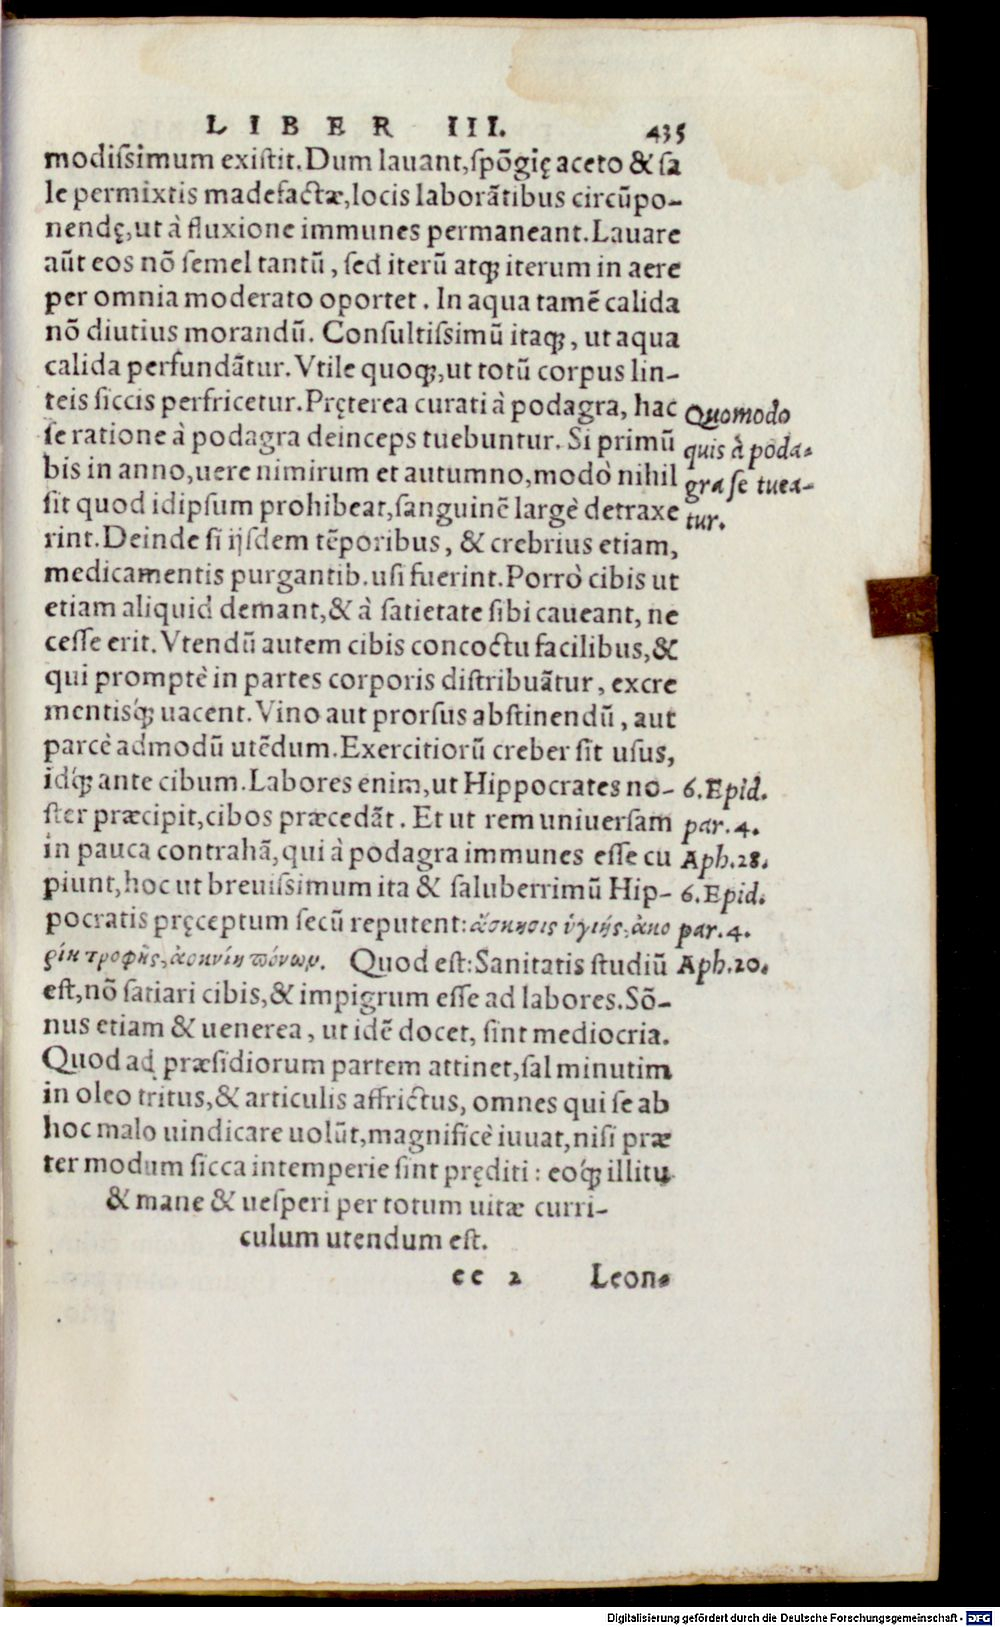 LIBER III. 435
modiſsimum exiſtit. Dum lauant, ſpõgię aceto & ſa
le permixtis madefactæ, locis laborãtibus circũpo-
nendę, ut à fluxione immunes permaneant. Lauare
aũt eos nõ ſemel tantũ, ſed iterũ atqꝫ iterum in aere
per omnia moderato oportet. In aqua tamẽ calida
nõ diutius morandũ. Conſultiſsimũ itaqꝫ, ut aqua
calida perfundãtur. Vtile quoqꝫ, ut totũ corpus lin-
teis ſiccis perfricetur. Pręterea curati à podagra, hac
ſe ratione à podagra deinceps tuebuntur. Si primũ
bis in anno, uere nimirum et autumno, modò nihil
ſit quod idipſum prohibeat, ſanguinẽ largè detraxe
rint. Deinde ſi ijſdem tẽporibus, & crebrius etiam,
medicamentis purgantib. uſi fuerint. Porrò cibis ut
etiam aliquid demant, & à ſatietate ſibi caueant, ne
ceſſe erit. Vtendũ autem cibis concoctu facilibus, &
qui promptè in partes corporis diſtribuãtur, excre
mentisq́ꝫ uacent. Vino aut prorſus abſtinendũ, aut
parcè admodũ utẽdum. Exercitiorũ creber ſit uſus,
idq́ꝫ ante cibum. Labores enim, ut Hippocrates no-
ſter præcipit, cibos præcedãt. Et ut rem uniuerſam
in pauca contrahã, qui à podagra immunes eſſe cu
piunt, hoc ut breuiſsimum ita & ſaluberrimũ Hip-
pocratis pręceptum ſecũ reputent: ἄσκησις ὑγιής, ἀκο
ρίη τροφῆς, ἀοκνίη πόνωμ. Quod eſt: Sanitatis ſtudiũ
eſt, nõ ſatiari cibis, & impigrum eſſe ad labores. Sõ-
nus etiam & uenerea, ut idẽ docet, ſint mediocria.
Quod ad præſidiorum partem attinet, ſal minutim
in oleo tritus, & articulis affrictus, omnes qui ſe ab
hoc malo uindicare uolũt, magnificè iuuat, niſi præ
ter modum ſicca intemperie ſint pręditi: eoq́ꝫ illitu
& mane & ueſperi per totum uitæ curri-
culum utendum eſt.
cc 2 Leon-
Quomodo
quis à poda-
gra ſe tuea-
tur.
6. Epid.
par. 4.
Aph. 28.
6. Epid.
par. 4.
Aph. 20.
Digitalisierung gefördert durch die Deutsche Forschungsgemeinschaft - DFG